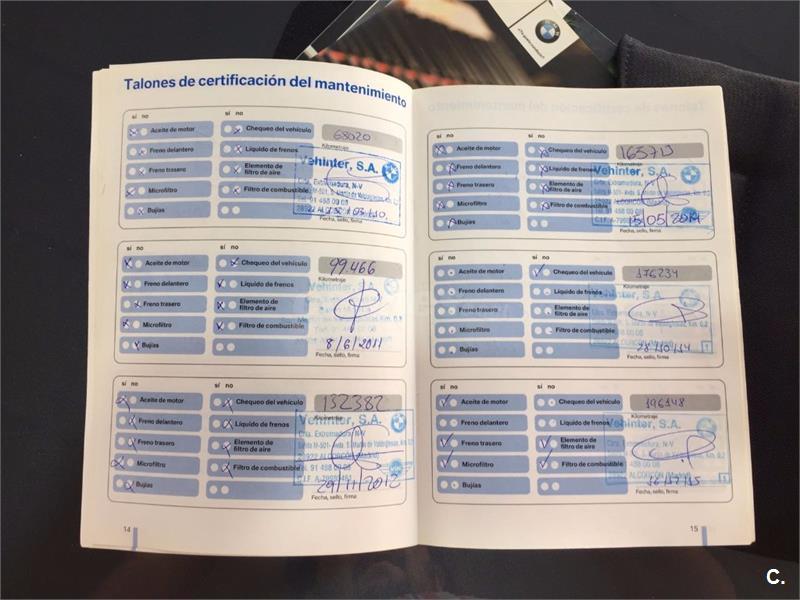 Talones de certificación del mantenimiento
sí no
sí no
Aceite de motor
Chequeo del vehículo
68020
Kilometraje
Freno delantero
Líquido de frenos
Vehinter, S.A.
Freno trasero
Elemento de filtro de aire
Ctra. Extremadura, N-V
Microfiltro
Filtro de combustible
Tel. 91 488 00 08
28922 ALCORCON
Bujías
Fecha, sello, firma
sí no
sí no
Aceite de motor
Chequeo del vehículo
99.466
Kilometraje
Freno delantero
Líquido de frenos
Vehinter, S.A.
Freno trasero
Elemento de filtro de aire
Microfiltro
Filtro de combustible
Bujías
8/6/2011
Fecha, sello, firma
sí no
sí no
Aceite de motor
Chequeo del vehículo
132382
Kilometraje
Freno delantero
Líquido de frenos
Vehinter, S.A.
Ctra. Extremadura, N-V
Freno trasero
Elemento de filtro de aire
28922 ALCORCON (Madrid)
Microfiltro
Filtro de combustible
Tel. 91 488 00 08
Bujías
29/11/2012
Fecha, sello, firma
14
sí no
sí no
Aceite de motor
Chequeo del vehículo
165713
Kilometraje
Freno delantero
Líquido de frenos
Vehinter, S.A.
Freno trasero
Elemento de filtro de aire
Ctra. Extremadura, N-V
Microfiltro
Filtro de combustible
Bujías
Fecha, sello, firma
sí no
sí no
Aceite de motor
Chequeo del vehículo
176234
Kilometraje
Freno delantero
Líquido de frenos
Vehinter, S.A.
Freno trasero
Elemento de filtro de aire
Microfiltro
Filtro de combustible
28/10/14
Bujías
Fecha, sello, firma
sí no
sí no
Aceite de motor
Chequeo del vehículo
196148
Kilometraje
Freno delantero
Líquido de frenos
Vehinter, S.A.
Freno trasero
Elemento de filtro de aire
Ctra. Extremadura, N-V
Microfiltro
Filtro de combustible
Bujías
Fecha, sello, firma
15
C.